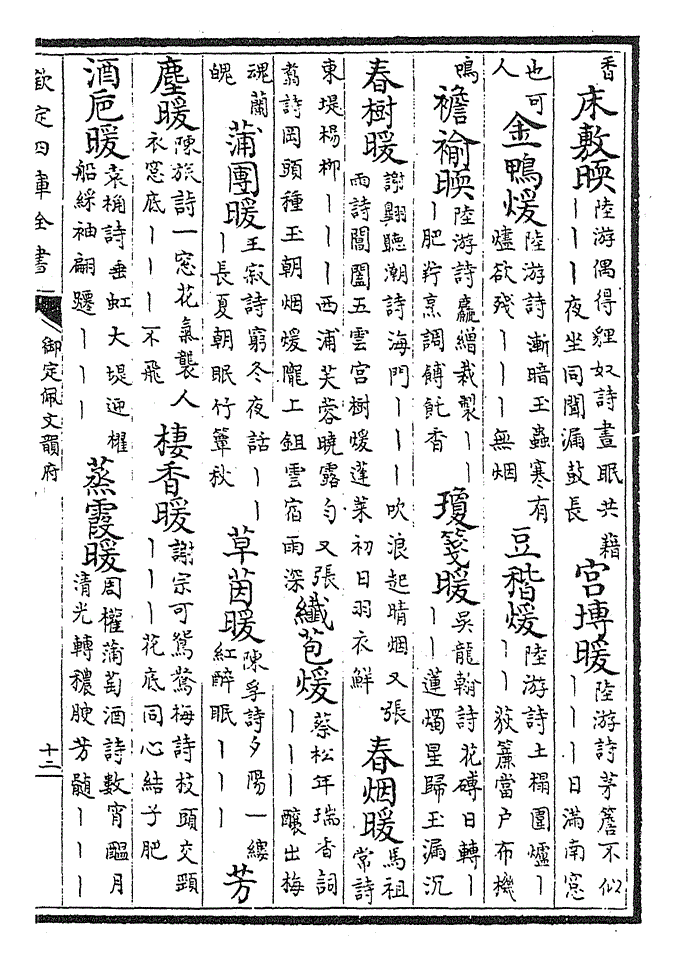 香
床敷暖
陸游偶得貍奴詩晝眠共藉
丨丨丨夜坐同聞漏鼓長
宫塼暖
陸游詩茅簷不似
丨丨丨日滿南窓
也可
人
金鴨煖
陸游詩漸暗玉蟲寒有
燼欲殘丨丨丨無烟
豆稭煖
陸游詩土榻圍爐丨
丨丨荻簾當户布機
鳴
襜褕暖
陸游詩麤繒裁製丨丨
丨肥羜烹調餺飥香
瓊箋暖
吴龍翰詩花磚日轉丨
丨丨蓮燭星歸玉漏沉
春樹暖
謝翺聽潮詩海門丨丨丨吹浪起晴烟又張
雨詩閶闔五雲宫樹煖蓬萊初日羽衣鮮
春烟暖
馬祖
常詩
東堤楊柳丨丨丨西浦芙蓉曉露匀又張
翥詩岡頭種玉朝烟煖隴上鉏雲宿雨深
纖苞煖
蔡松年瑞香詞
丨丨丨釀出梅
魂蘭
魄
蒲團暖
王寂詩窮冬夜話丨丨
丨長夏朝眠竹簟秋
草茵暖
陳孚詩夕陽一縷
紅醉眠丨丨丨
芳
塵暖
陳旅詩一窓花氣襲人
衣窓底丨丨丨不飛
棲香暖
謝宗可鴛鴦梅詩枝頭交頸
丨丨丨花底同心結子肥
酒巵暖
袁桷詩垂虹大堤迎櫂
船綵袖翩躚丨丨丨
蒸霞暖
周權蒲萄酒詩數宵醖月
清光轉穠腴芳髓丨丨丨
欽定四庫全書
御定佩文韻府
十二